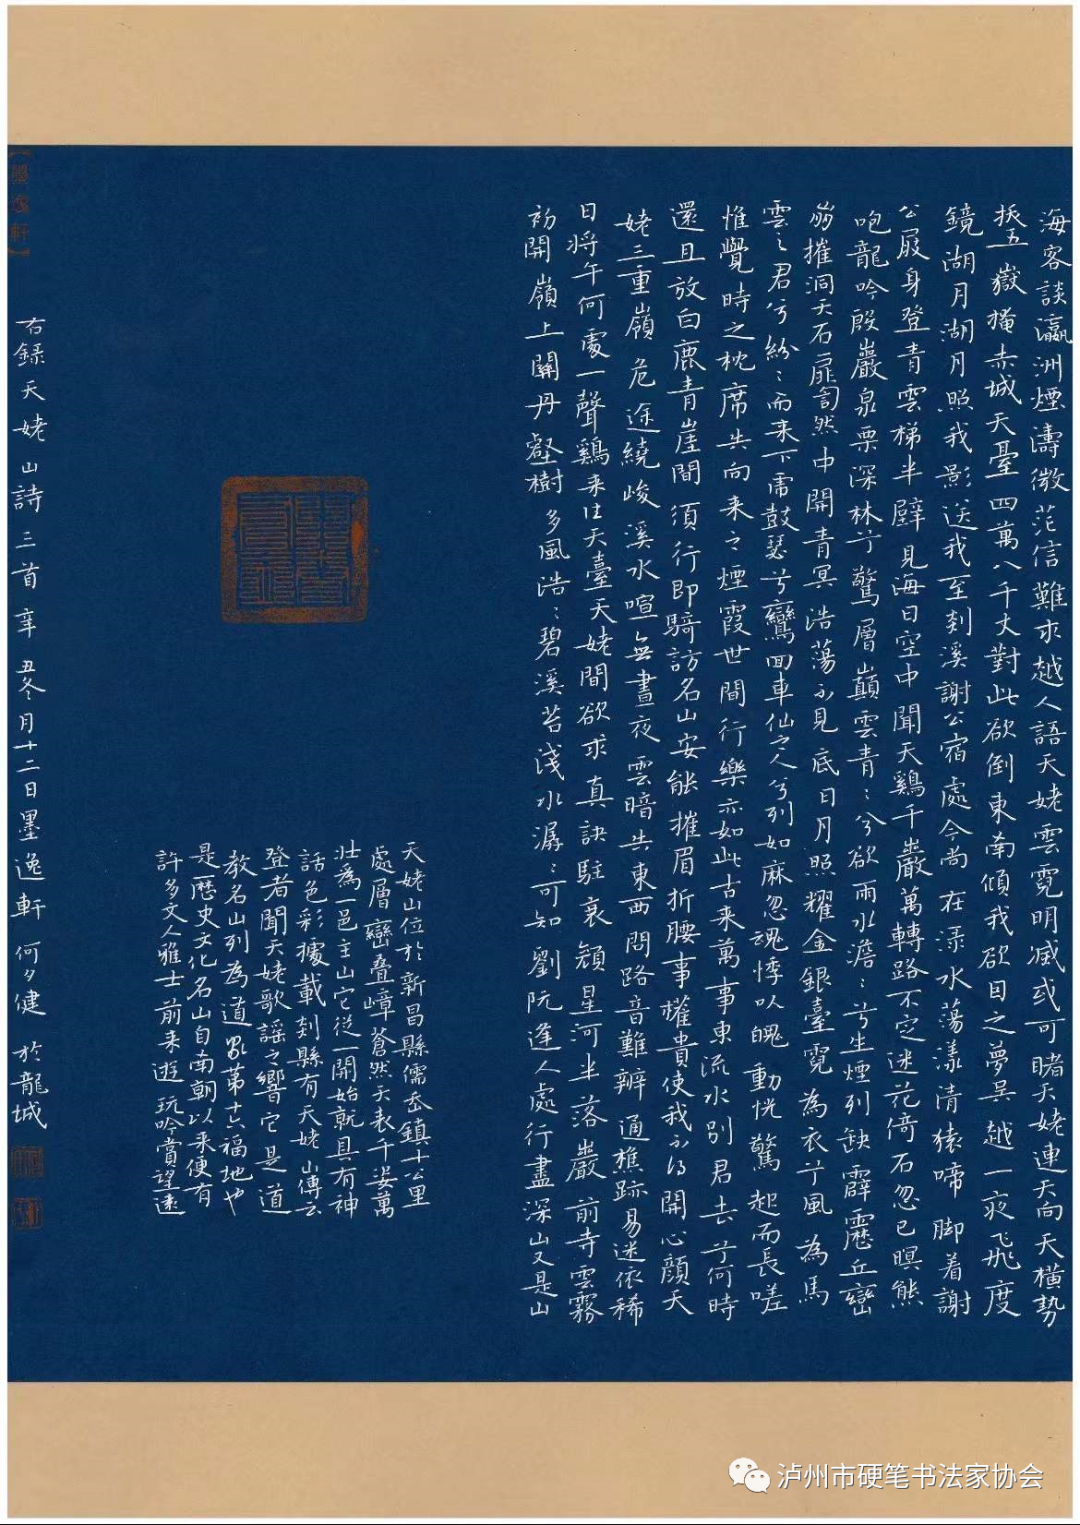 海客談瀛洲煙濤微茫信難求越人語天姥雲霓明滅或可睹天姥連天向天橫勢
拔五嶽掩赤城天臺四萬八千丈對此欲倒東南傾我欲因之夢吳越一夜飛度
鏡湖月湖月照我影送我至剡溪謝公宿處今尚在渌水蕩漾清猿啼脚着謝
公屐身登青雲梯半壁見海日空中聞天鷄千巖萬轉路不定迷花倚石忽已暝熊
咆龍吟殷巖泉栗深林兮驚層巔雲青〻兮欲雨水澹〻兮生煙列缺霹靂丘巒
崩摧洞天石扉訇然中開青冥浩蕩不見底日月照耀金銀臺霓為衣兮風為馬
雲之君兮紛〻而来下虎鼓瑟兮鸞回車仙之人兮列如麻忽魂悸以魄動恍驚起而長嗟
惟覺時之枕席失向来之煙霞世間行樂亦如此古来萬事東流水别君去兮何時
還且放白鹿青崖間須行即騎訪名山安能摧眉折腰事權貴使我不得開心顔天
姥三重嶺危途繞峻溪水喧無晝夜雲暗失東西問路音難辨通樵跡易迷依稀
日将午何處一聲鷄来往天臺天姥間欲求真訣駐衰顔星河半落巖前寺雲霧
初開嶺上關丹壑樹多風浩〻碧溪苔淺水潺〻可知劉阮逢人處行盡深山又是山
天姥山位於新昌縣儒岙鎮十公里
處層巒叠嶂蒼然天表千姿萬
壯為一邑主山它從一開始就具有神
話色彩據載剡縣有天姥山傳云
登者聞天姥歌謡之響它是道
教名山列為道家第十六福地也
是歷史文化名山自南朝以来便有
許多文人雅士前来遊玩吟賞望遠
右錄天姥山詩三首辛丑冬月十二日墨逸軒何夕健於龍城
墨逸軒
泸州市硬笔书法家协会